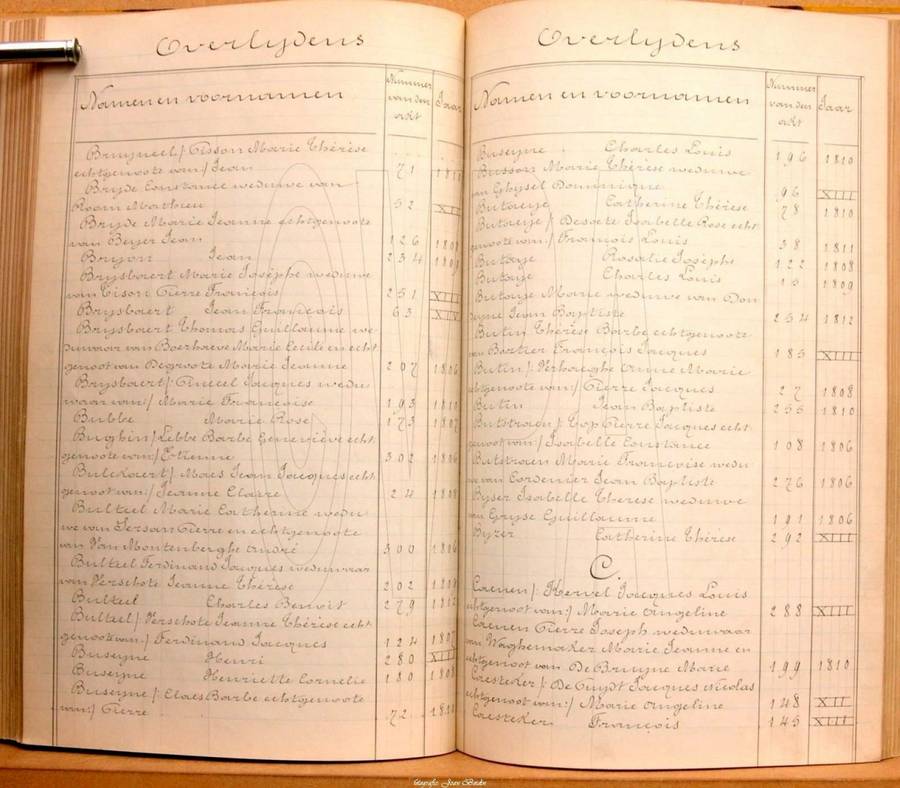 Overlydens
Namen en voornamen
Nummer van den akt
Jaar
Bruyneel /: Cisson Marie Thérèse
echtgenoote van :/ Jean 71
Bryde Constance weduwe van
Room Mathieu 52 XII
Bryde Marie Jeanne echtgenoote
van Beyer Jean 126
Bryon Jean 234
Brysbaert Marie Josèphe weduwe
van Tison Pierre François 251 XIII
Brysbaert Jean François 63 XIV
Brysbaert Thomas Guillaume we-
duwaar van Boerhaeve Marie Cecile en echt
genoot van Degroote Marie Jeanne 207 1806
Brysbaert /: Jacques wedu
waar van :/ Marie Françoise 193 1811
Bubbe Marie Rose 173 1807
Bughin /: Lebbe Barbe Geneviève echt
genoote van :/ Etienne 302 1806
Bulckaert /: Maes Jean Jacques echt
genoot van :/ Jeanne Claire 24 1808
Bulteel Marie Catherine wedu
we van Pierre en echtgenoote
van Van Montenberghe André 300 1806
Bulteel Ferdinand Jacques weduwaar
van Verschote Jeanne Thérèse 202
Bulteel Charles Benoit 279 1812
Bulteel /: Verschote Jeanne Thérèse echt
genoote van :/ Ferdinand Jacques 124 1807
Buseyne Henri 280 XIII
Buseyne Henriette Cornélie 180 1808
Buseyne /: Claes Barbe echtgenoote
van :/ Pierre 72 1810
Overlydens
Namen en voornamen
Nummer van den akt
Jaar
Buseyne Charles Louis 196 1810
Busson Marie Thérèse weduwe
van Ghysel Dominique 96 XIII
Butaeye Catherine Thérèse 78 1810
Butaeye /: Desaete Isabelle Rose echt
genoote van :/ François Louis 38 1811
Butaye Rosalie Josèphe 122 1808
Butaye Charles Louis 15 1809
Butaye Marie weduwe van Don
deyne Jean Baptiste 254 1812
Butin Thérèse Barbe echtgenoote
van Bortier François Jacques 185 XIII
Butin /: Verhaeghe Anne Marie
echtgenoote van :/ Pierre Jacques 27 1808
Butin Jean Baptiste 255 1810
Butstraen /: Top Pierre Jacques echt
genoot van :/ Isabelle Constance 108 1806
Butstraen Marie Françoise wedu
we van Cordenier Jean Baptiste 276 1806
Byser Isabelle Thérèse weduwe
van Gryse Guillaume 191 1806
Byzer Catherine Thérèse 292 XIII
C.
Caenen /: Hervel Jacques Louis
echtgenoot van :/ Marie Angeline 288 XIII
Caenen Pierre Joseph weduwaar
van Waghemaker Marie Jeanne en
echtgenoot van De Bruyne Marie 199 1810
Caesteker /: De Cuypt Jacques Nicolas
echtgenoot van :/ Marie Angeline 148 XII
Caesteker François 145 XIII